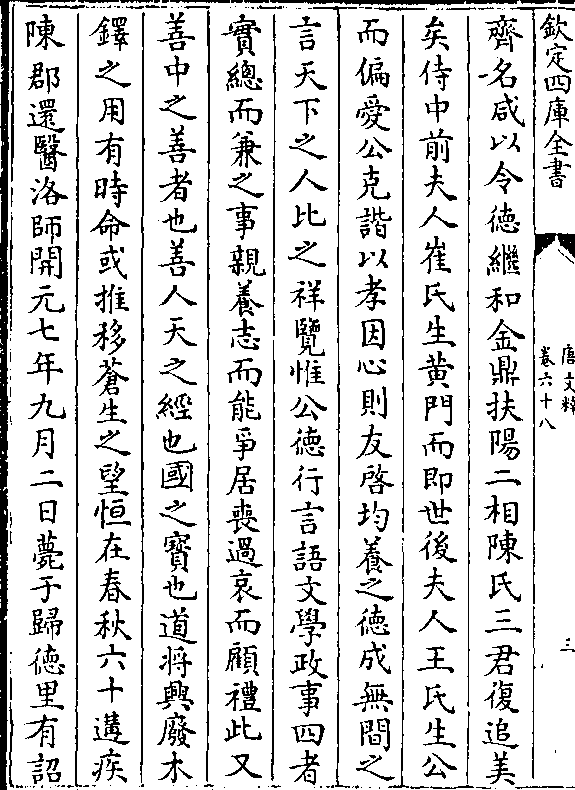 欽定四庫全書
唐文粹
卷六十八
三
齊名咸以令德繼和金鼎扶陽二相陳氏三君復追美
矣侍中前夫人崔氏生黄門而即世後夫人王氏生公
而偏愛公克諧以孝因心則友啓均養之德成無間之
言天下之人比之祥覽惟公德行言語文學政事四者
實總而兼之事親養志而能爭居喪過哀而顧禮此又
善中之善者也善人天之經也國之寳也道將興廢木
鐸之用有時命或推移蒼生之望恒在春秋六十遘疾
陳郡還醫洛師開元七年九月二日薨于歸德里有詔